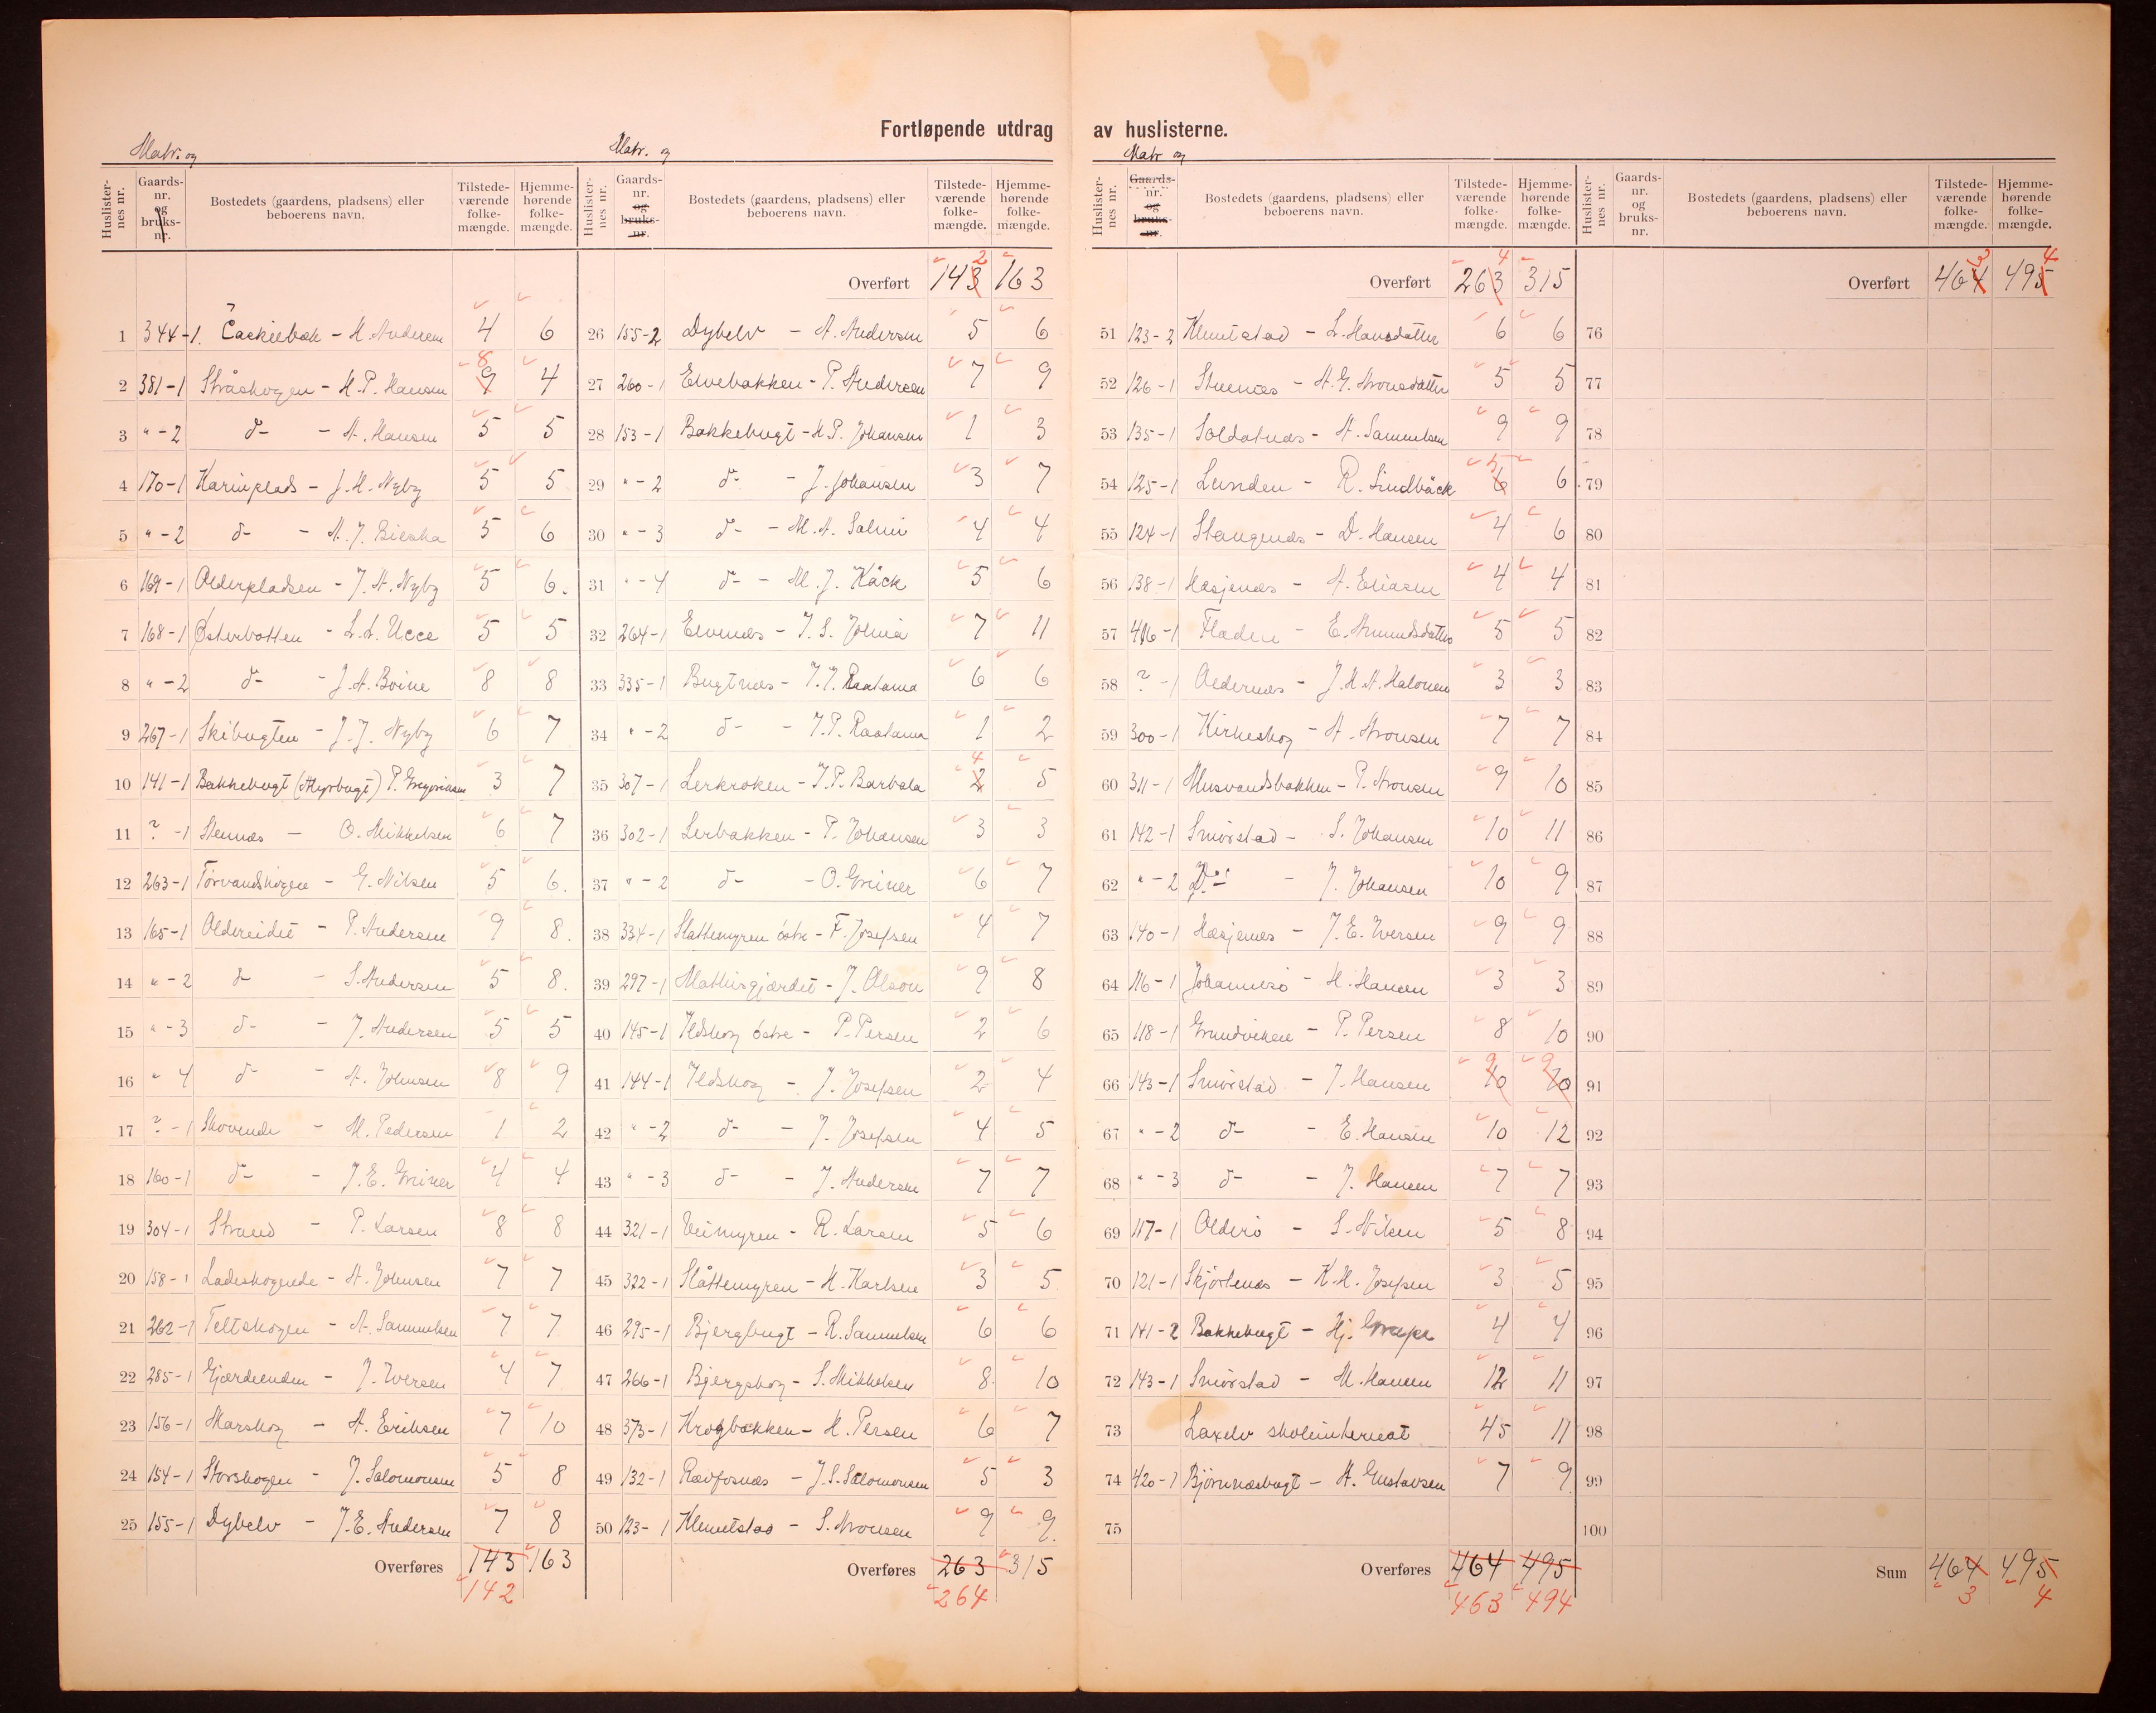 Fortløpende utdrag av huslisterne.
Matr. og
Matr. og
Matr og
Huslister-nes nr. Gaards-nr. og bruks-nr. Bostedets (gaardens, pladsens) eller beboerens navn. Tilstede-værende folke-mængde. Hjemme-hørende folke-mængde.
1 344-1. - H. Andersen 4 6
2 381-1 Stråskogen - H. P. Hansen 9 8 4
3 " -2 d- - A. Hansen 5 5
4 170-1 Karinplads - J. H. Nyby 5 5
5 " -2 d- - A. J. 5 6
6 169-1 Olderpladsen - J. A. Nyby 5 6.
7 168-1 Østerbotten - L. L. Ucce 5 5
8 " -2 d- - J. A. Boine 8 8
9 267-1 Skibugten - J. J. Nyby 6 7
10 141-1 Bakkebugt (Myrbugt) P. Gregoriusen 3 7
11 ? -1 Stennæs - O. Mikkelsen 6 7
12 263-1 Törvandskogen - G. Nilsen 5 6.
13 165-1 Oldereidet - P. Andersen 9 8.
14 " -2 d- - S. Andersen 5 8.
15 " -3 d- - J. Andersen 5 5
16 " 4 d- - A. Johnsen 8 9
17 ? -1 Skovende - M. Pedersen 1 2
18 160-1 d- - J. E. Griner 4 4
19 304-1 Strand - P. Larsen 8 8
20 158-1 Ladeskogende - A. Johnsen 7 7
21 262-1 Teltskogen - A. Samuelsen 7 7
22 285-1 Gjærdeenden - J. Iversen 4 7
23 156-1 Marskog - A. Eriksen 7 10
24 154-1 Storskogen - J. Salomonsen 5 8
25 155-1 Dybelv - J. E. Andersen 7 8
Overføres 143 163
142
Huslister-nes nr. Gaards-nr. og bruks-nr. Bostedets (gaardens, pladsens) eller beboerens navn. Tilstede-værende folke-mængde. Hjemme-hørende folke-mængde.
Overført 143 2 163
26 155-2 Dybelv - A. Andersen 5 6
27 260-1 Elvebakken - P. Andersen 7 9
28 153-1 Bakkebugt - H. P. Johansen 1 3
29 " -2 d- - J. Johansen 3 7
30 " -3 d- - M. A. Salmi 4 4
31 " -4 d- - M. J. Käck 5 6
32 264-1 Elvenæs - I. S. Johna 7 11
33 335-1 Bugtnæs - I. I. Raatama 6 6
34 " -2 d- - I. P. Raatama 1 2
35 307-1 Lerkroken - I. P. Barbala 2 4 5
36 302-1 Lerbakken - P. Johansen 3 3
37 " -2 d- - O. Griner 6 7
38 334-1 Slåttemyren östre - F. Josefsen 4 7
39 297-1 Mathisgjærdet - J. Olson 9 8
40 145-1 Ildskog östre - P. Persen 2 6
41 144-1 Ildskog - J. Josefsen 2 4
42 " -2 d- - J. Josefsen 4 5
43 " -3 d- - J. Andersen 7 7
44 321-1 Veimyren - R. Larsen 5 6
45 322-1 Slåttemyren - K. Karlsen 3 5
46 295-1 Bjergbugt - R. Samuelsen 6 6
47 266-1 Bjergskog - S. Mikkelsen 8 10
48 373-1 Krogbakken - H. Persen 6 7
49 132-1 Rævfosnæs - J. S. Salomonsen 5 3
50 123-1 Klemetstad - S. Aronsen 9 9.
Overføres 263 315
264
Huslister-nes nr. Gaards-nr. og bruks-nr. Bostedets (gaardens, pladsens) eller beboerens navn. Tilstede-værende folke-mængde. Hjemme-hørende folke-mængde.
Overført 263 4 315
51 123-2 Klemetstad - L. Hansdatter 6 6
52 126-1 Stuenæs - A. G. Aronsdatter 5 5
53 135-1 Soldatnæs - A. Samuelsen 9 9
54 125-1 Lunden - R. Lindbäck 6 5 6
55 124-1 Stangenæs - D. Hansen 4 6
56 138-1 Hæsjenæs - A. Eliasen 4 4
57 416-1 Fladen - E. Amundsdatter 5 5
58 ? -1 Oldernæs - J. H. A. Halonen 3 3
59 300-1 Kirkeskog - A. Aronsen 7 7
60 311-1 Musvandsbakken - P. Aronsen 9 10
61 142-1 Smörstad - S. Johansen 10 11
62 " -2 Do - J. Johansen 10 9
63 140-1 Hæsjenæs - J. E. Iversen 9 9
64 116-1 Johannesö - H. Hansen 3 3
65 118-1 Grundviken - P. Persen 8 10
66 143-1 Smörstad - J. Hansen 10 9 10 9
67 " -2 d- - E. Hansen 10 12
68 " -3 d- - J. Hansen 7 7
69 117-1 Olderö - S. Nilsen 5 8
70 121-1 Skjörtenæs - K. H. Josefsen 3 5
71 141-2 Bakkebugt - Hj. Grape 4 4
72 143-1 Smörstad - M. Hansen 12 11
73 Laxelv skoleinternat 45 11
74 420-1 Björnnæsbugt - A. Gustavsen 7 9
75
Overføres 464 495
463 494
Huslister-nes nr. Gaards-nr. og bruks-nr. Bostedets (gaardens, pladsens) eller beboerens navn. Tilstede-værende folke-mængde. Hjemme-hørende folke-mængde.
Overført 464 3 495 4
76
77
78
79
80
81
82
83
84
85
86
87
88
89
90
91
92
93
94
95
96
97
98
99
100
Sum 464 495
3 4